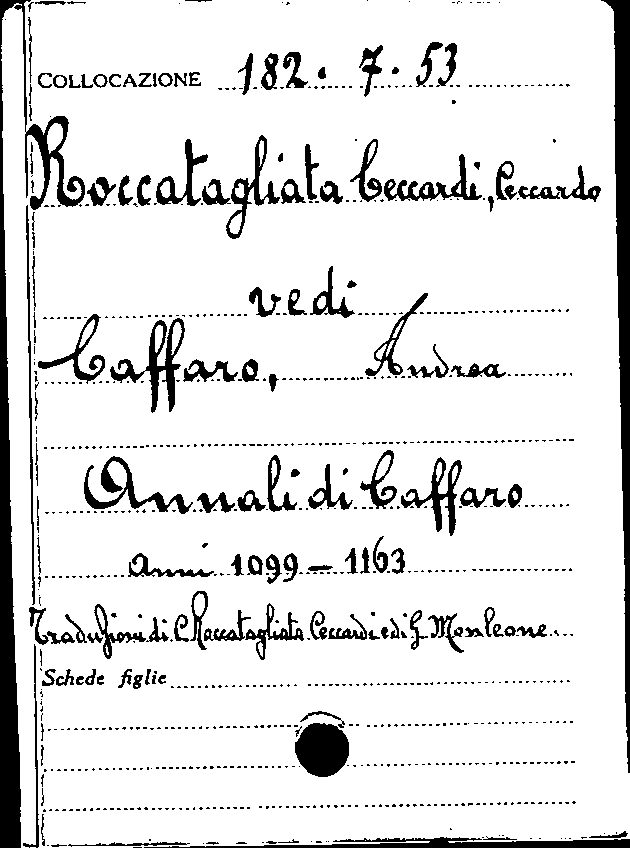 COLLOCAZIONE 182. 7. 53
Roccatagliata Ceccardi, Ceccardo
vedi
Caffaro, Andrea
Annali di Caffaro
anni 1099 - 1163
Traduzioni di C. Roccatagliata Ceccardi e di G. Monleone.
Schede figlie